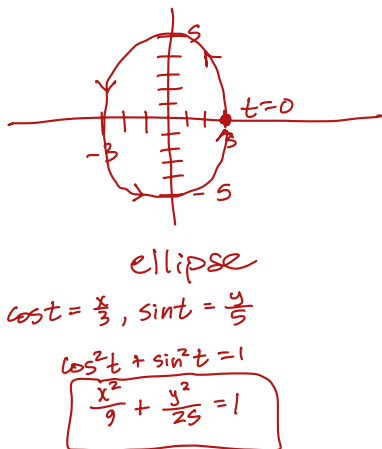 5
t=0
-3
3
-5
ellipse
cos t = x/3, sin t = y/5
cos²t + sin²t = 1
x²/9 + y²/25 = 1